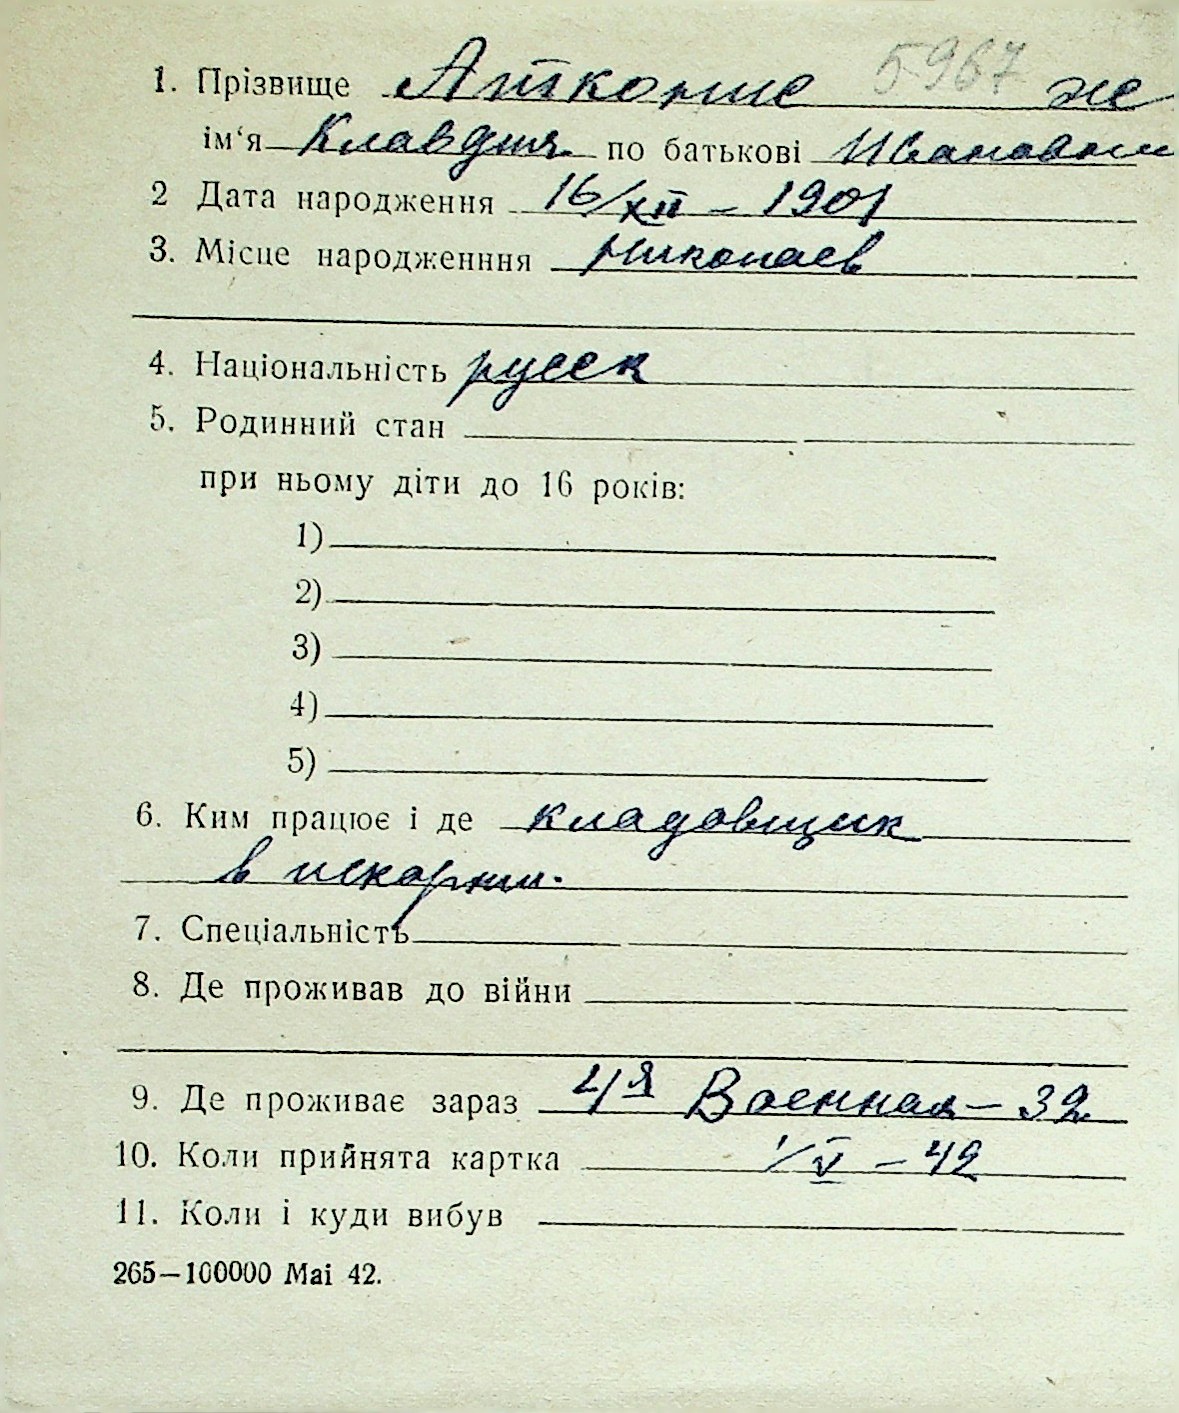 1. Прізвище Атконие 5967 же
ім‘я Клавдия по батькові Ивановни
2 Дата народження 16/XII – 1901
3. Місце народженння Николаев
4. Національність русск
5. Родинний стан
при ньому діти до 16 років:
1)
2)
3)
4)
5)
6. Ким працює і де кладовщик
в пекарни.
7. Спеціальність
8. Де проживав до війни
9. Де проживає зараз 4я Военная – 32
10. Коли прийнята картка 1/V – 42
11. Коли і куди вибув
265—100000 Mai 42.